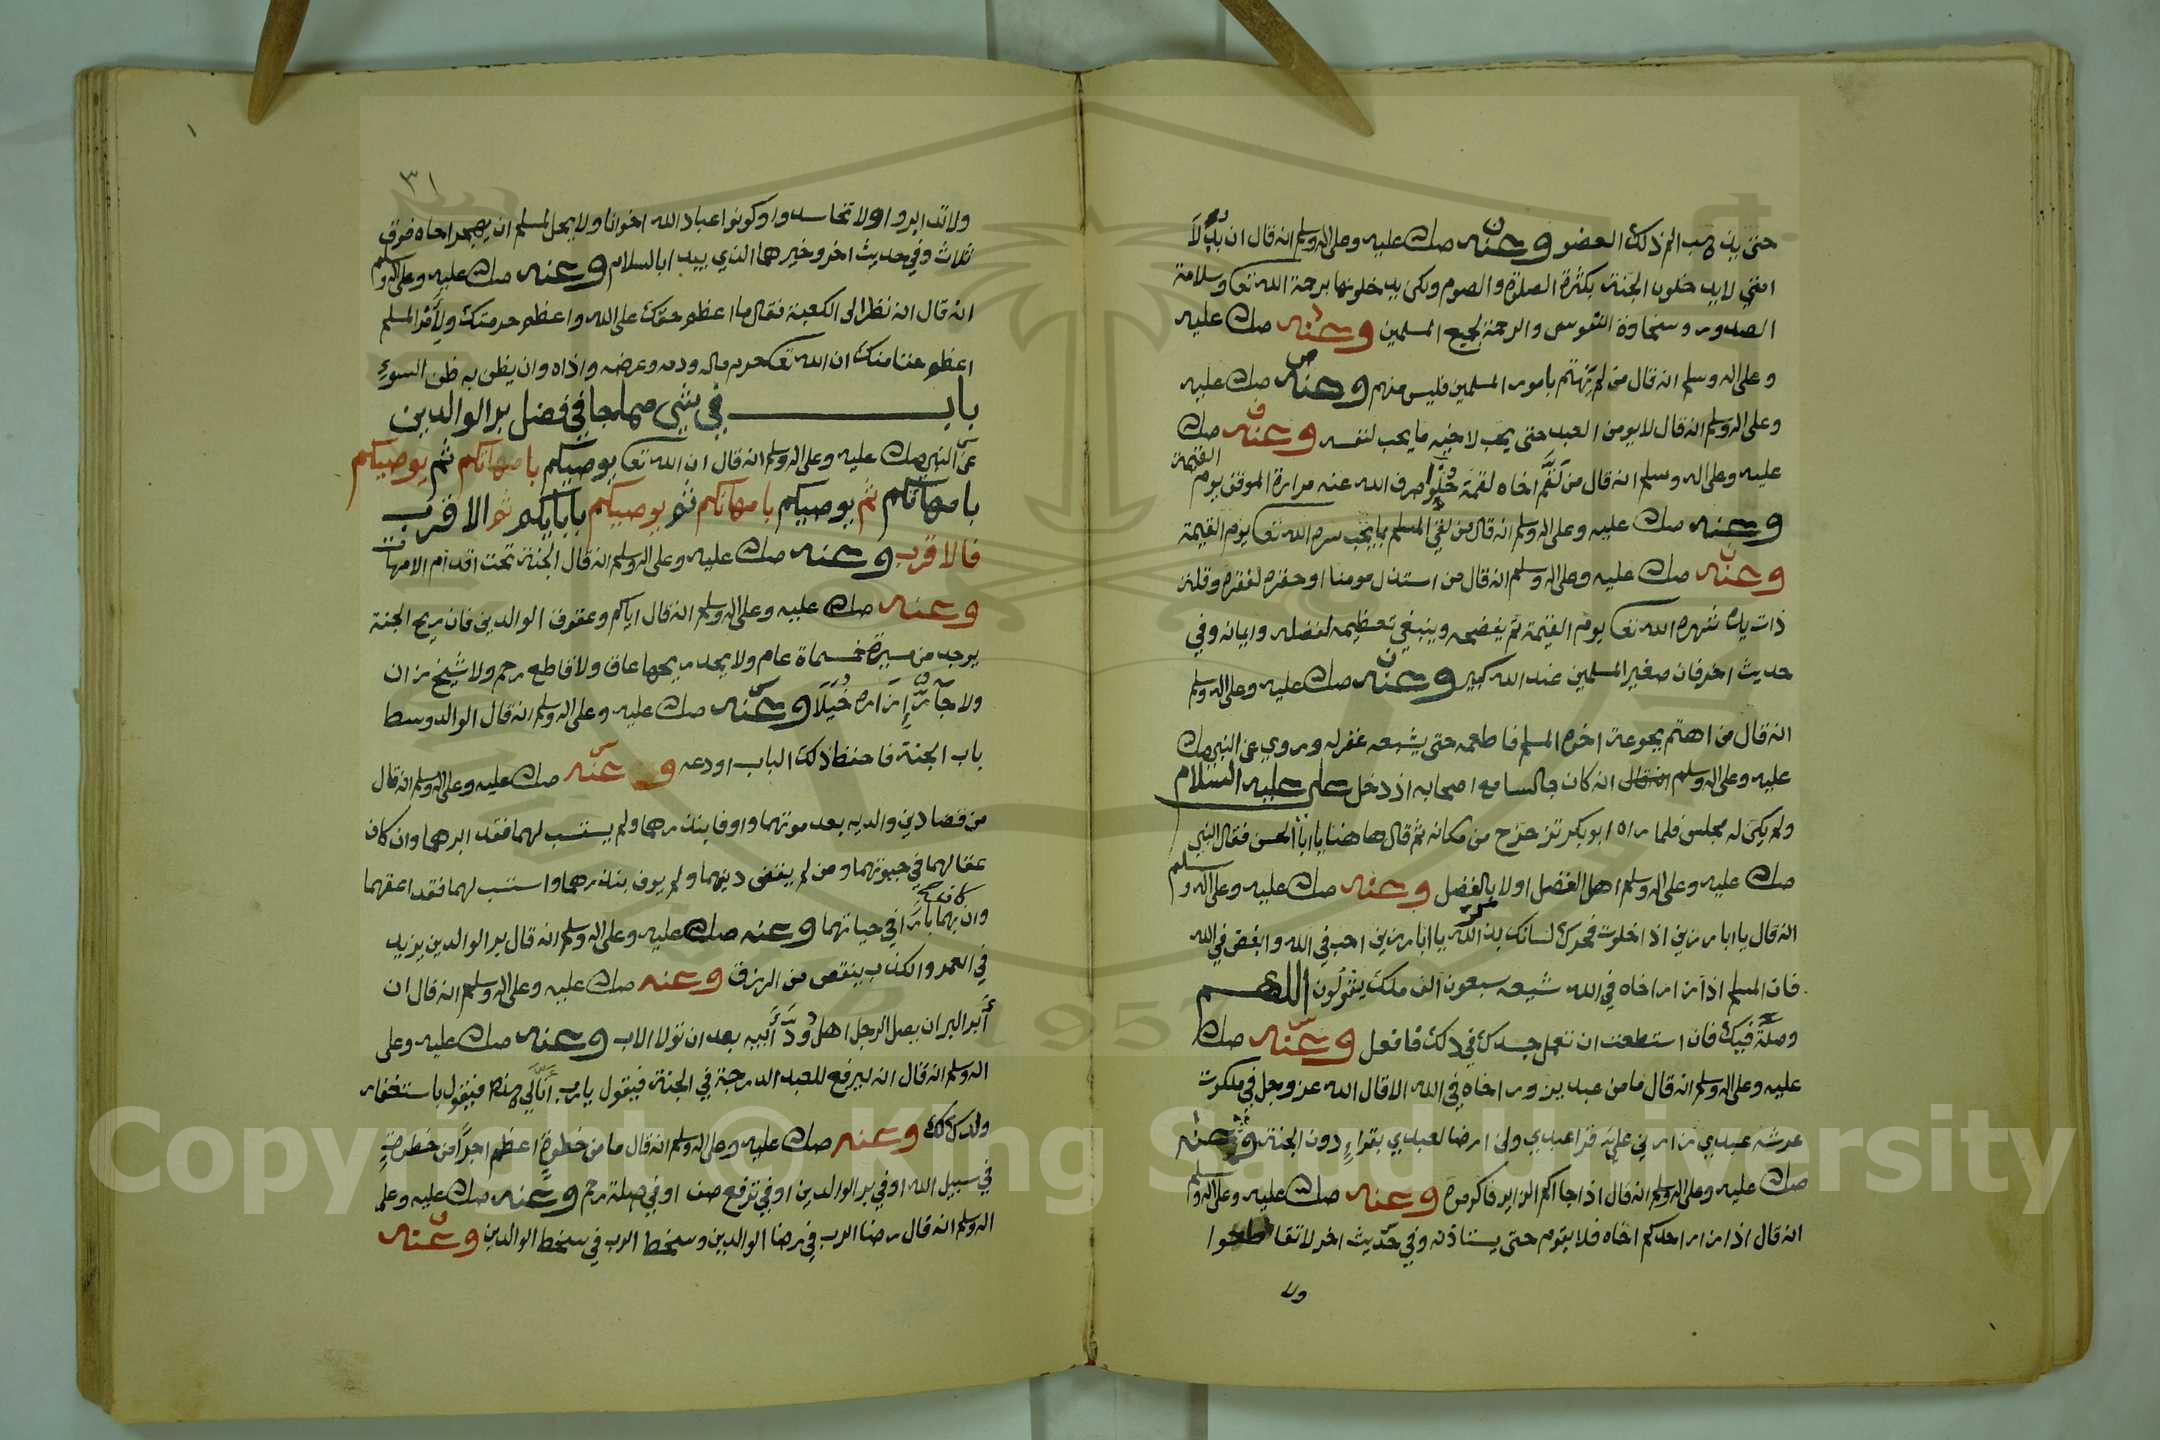 حتى يذهب الم ذلك العضو وعنه صلى عليه وعلى اله وسلم انه قال ان بدلا
امتي لا يدخلون الجنة بكثرة الصلوة والصوم ولكن يدخلونها برحمة الله تعا وسلامة
الصدور وسخاوة النفوس والرحمة لجميع المسلمين وعنه صلى عليه
وعلى اله وسلم انه قال من لم يهتم بامور المسلمين فليس منهم وعنه صلى عليه
وعلى اله وسلم انه قال لا يومن العبد حتى يحب لاخيه ما يحب لنفسه وعنه صلى
عليه وعلى اله وسلم انه قال من لقم اخاه لقمة حلوا صرف الله عنه مرارة الموقف يوم القيمة
وعنه صلى عليه وعلى اله وسلم انه قال من لقي المسلم بما يحب سره الله تعا يوم القيمة
وعنه صلى عليه وعلى اله وسلم انه قال من استذل مومنا او حقره لفقره وقلة
ذات يده شهره الله تعا يوم القيمة ثم يفضحه وينبغي تعظيمه لفضله وايمانه وفي
حديث اخر فان صغير المسلمين عند الله كبير وعنه صلى عليه وعلى اله وسلم
انه قال من اهتم بجوعة اخوه المسلم فاطعمه حتى يشبعه غفر له وروي عن النبي صلى
عليه وعلى اله وسلم انه كان جالسا مع اصحابه اذ دخل علي عليه السلام
ولم يكن له مجلس فلما راه ابو بكر تزحزح من مكانه ثم قال هاهنا يا ابا الحسن فقال النبي
صلى عليه وعلى اله وسلم اهل الفضل اولا بالفضل وعنه صلى عليه وعلى اله وسلم
انه قال يا ابا رزين اذا خلوت فحرك لسانك بذكر الله يا ابا رزين احب في الله وابغض في الله
فان المسلم اذا زار اخاه في الله شيعه سبعون الف ملك يقولون اللهم
وصله فيك فان استطعت ان تعمل جسدك في ذلك فافعل وعنه صلى
عليه وعلى اله وسلم انه قال ما من عبد يزور اخاه في الله الا قال الله عز وجل في ملكوت
عرشه عبدي زارني علي قرا عبدي ولن ارضا لعبدي بقراء دون الجنة وعنه
صلى عليه وعلى اله وسلم انه قال اذا جاكم الزاير فاكرموه وعنه صلى عليه وعلى اله وسلم
انه قال اذا زار احدكم اخاه فلا يقوم حتى يستاذنه وفي حديث اخر لا تقاطعوا
ولا
٣١
ولا تدابروا ولا تحاسدوا وكونوا عباد الله اخوانا ولا يحل لمسلم ان يهجر اخاه فوق
ثلاث وفي حديث اخر وخيرهما الذي يبدا بالسلام وعنه صلى عليه وعلى اله وسلم
انه قال انه نظر الى الكعبة فقال ما اعظم حقك على الله واعظم حرمتك وللمسلم
اعظم حقا منك ان الله تعا حرم ماله ودمه وعرضه واذاه وان يظن به ظن السوء
باب في شي مما جا في فضل بر الوالدين
عن النبي صلى عليه وعلى اله وسلم انه قال ان الله تعا يوصيكم بامهاتكم ثم يوصيكم
بامهاتكم ثم يوصيكم بامهاتكم ثم يوصيكم باباكم ثم الاقرب
فالاقرب وعنه صلى عليه وعلى اله وسلم انه قال الجنة تحت اقدام الامهات
وعنه صلى عليه وعلى اله وسلم انه قال اياكم وعقوق الوالدين فان ريح الجنة
يوجد من مسيرة خمسماة عام ولا يجد ريحها عاق ولا قاطع رحم ولا شيخ زان
ولا جار ازاره خيلا وعنه صلى عليه وعلى اله وسلم انه قال الوالد وسط
باب الجنة فاحفظ ذلك الباب او دعه وعنه صلى عليه وعلى اله وسلم انه قال
من قضا دين والديه بعد موتهما واوفا بنذرهما ولم يستسب لهما فقد ابرهما وان كان
عقا لهما في حيوتهما ومن لم يقض دينهما ولم يوف بنذرهما واستسب لهما فقد اعقهما
وان كان بهما بارا في حياتهما وعنه صلى عليه وعلى اله وسلم انه قال بر الوالدين يزيد
في العمر والكذب ينقص من الرزق وعنه صلى عليه وعلى اله وسلم انه قال ان
أبر البر ان يصل الرجل اهل ود أبيه بعد ان تولا الاب وعنه صلى عليه وعلى
اله وسلم انه قال انه ليرفع للعبد الدرجة في الجنة فيقول يا رب انا لي هذه فيقول باستغفار
ولدك لك وعنه صلى عليه وعلى اله وسلم انه قال ما من خطوة اعظم اجرا من خطوة
في سبيل الله او في بر الوالدين او في ترفع صف او في صلة رحم وعنه صلى عليه وعلى
اله وسلم انه قال رضا الرب في رضا الوالدين وسخط الرب في سخط الوالدين وعنه
Copyright © King Saud University
1957